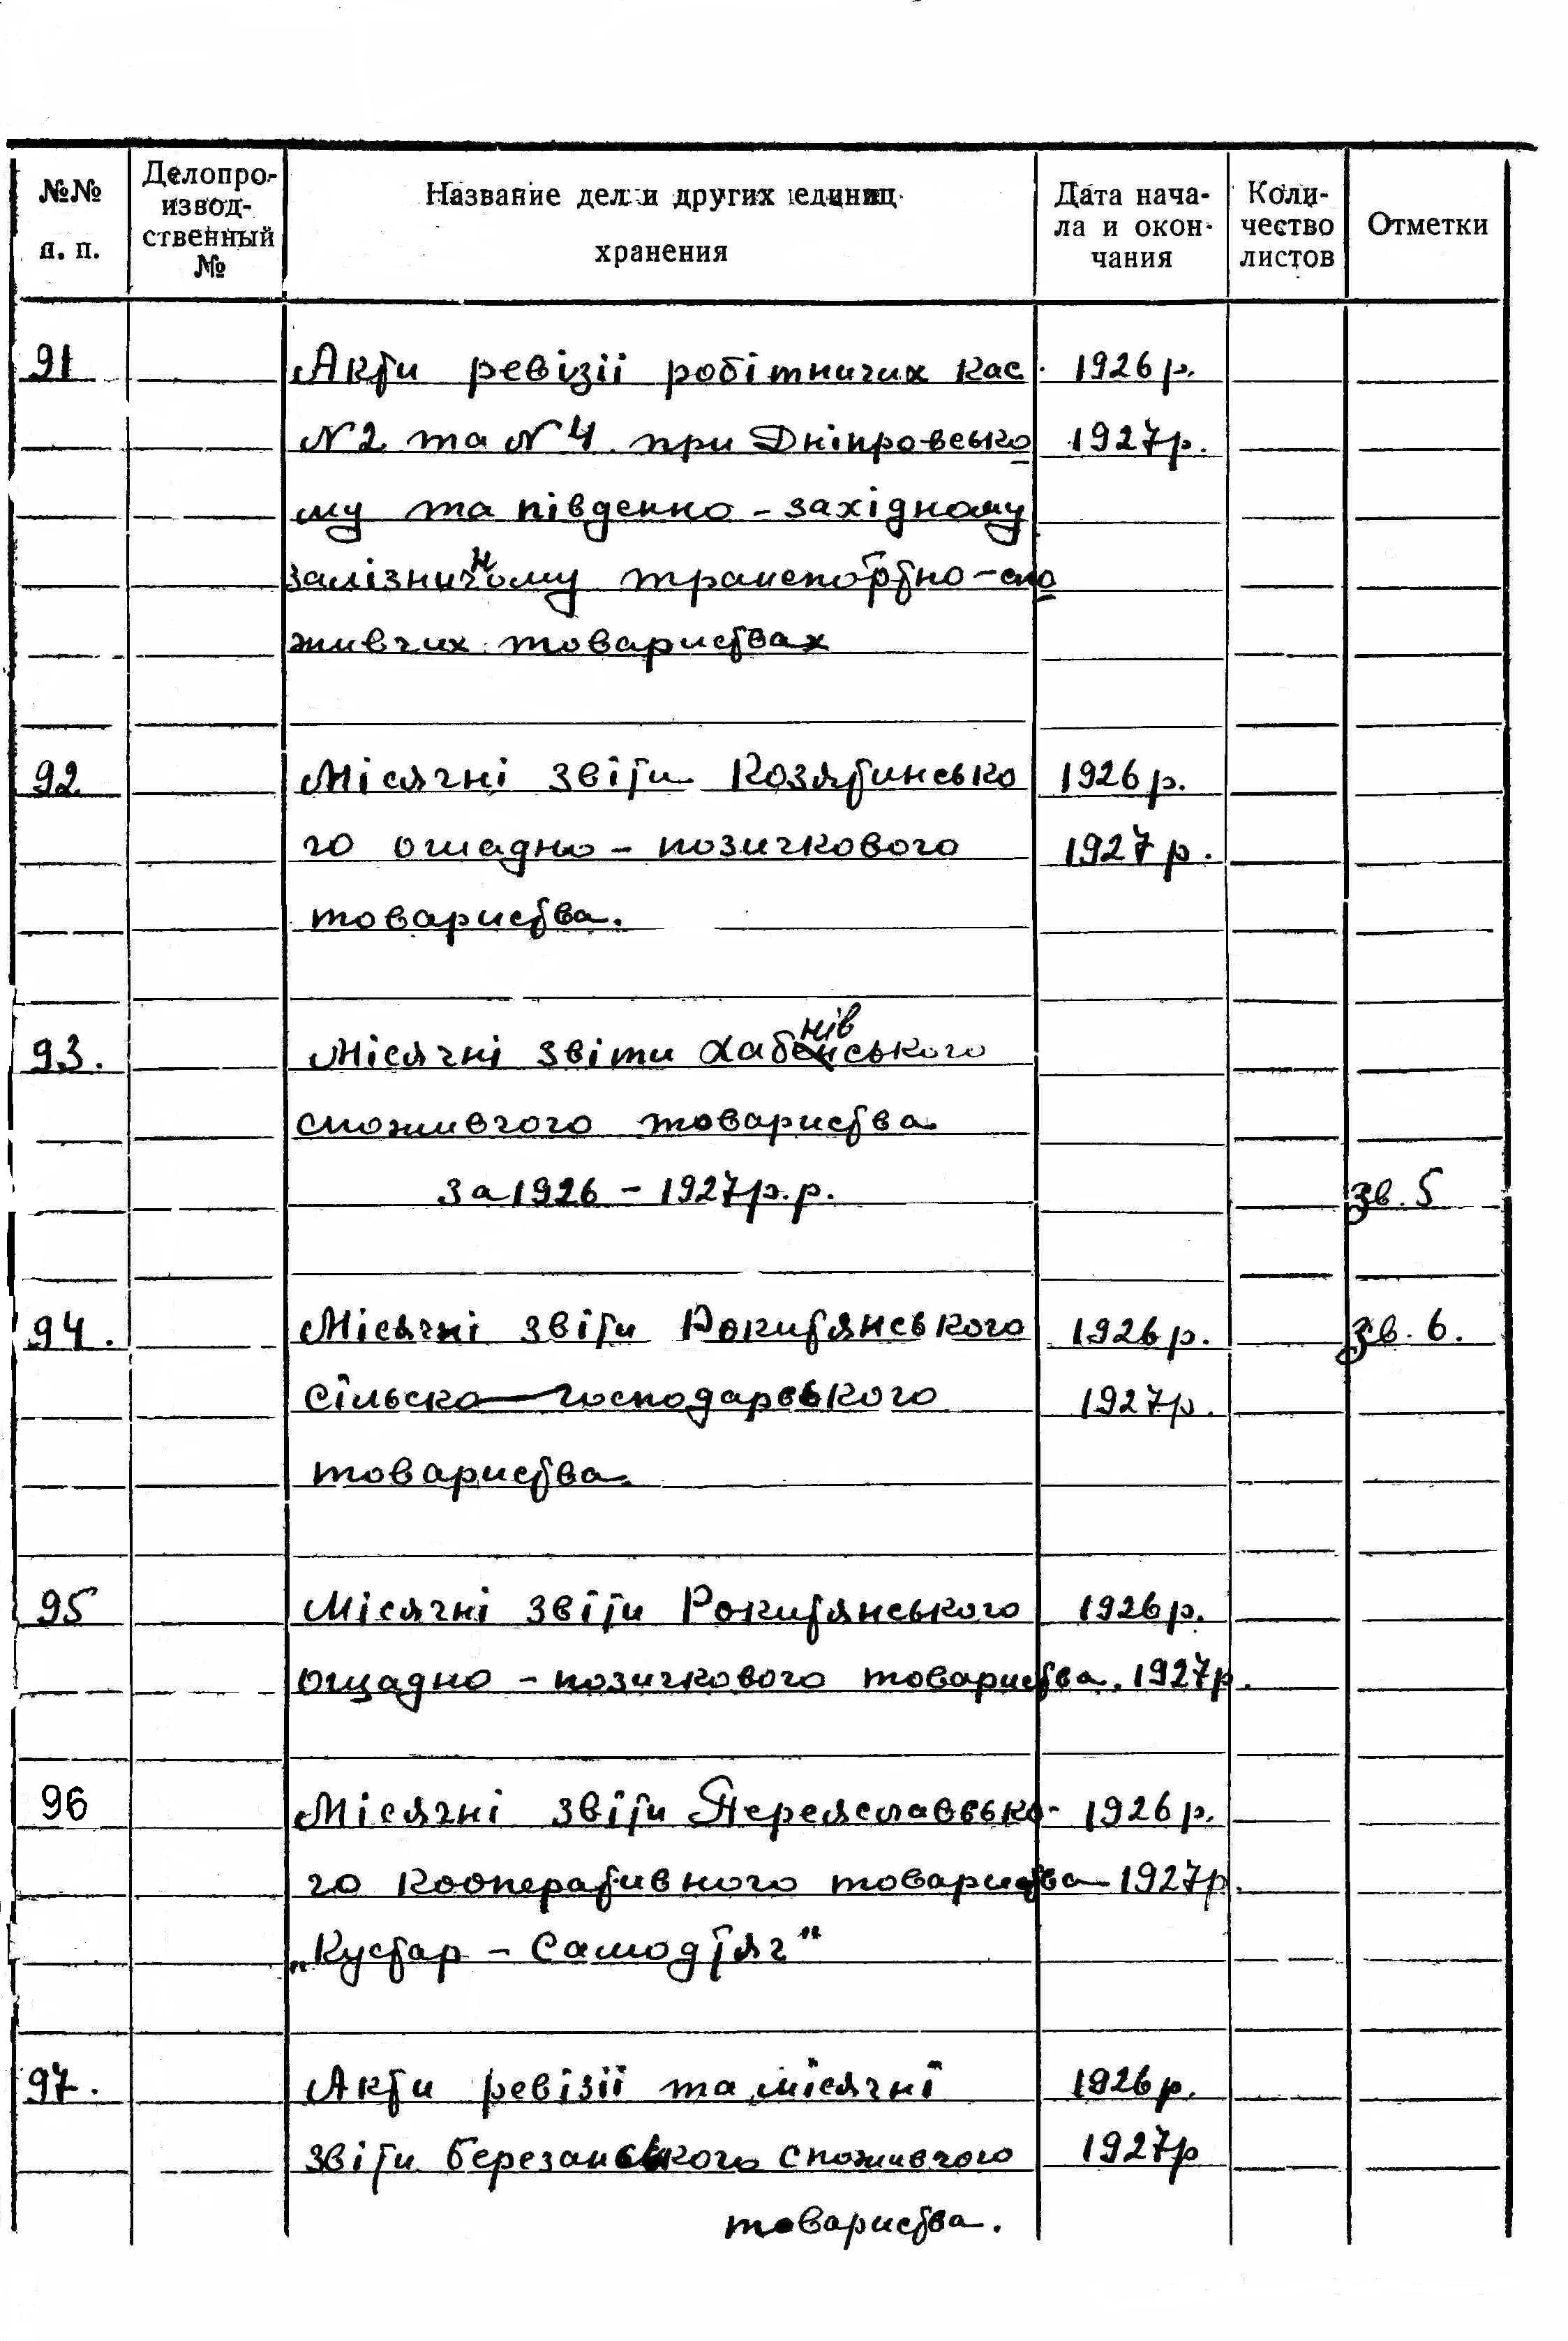 №№ п. п.
Делопро-
извод-
ственный
№
Название дел и других единиц
хранения
Дата нача-
ла и окон-
чания
Коли-
чество
листов
Отметки
91 Акти ревізії робітничих кас 1926 р.
N2 та N4 при Дніпровсько 1927 р.
му та південно - західному
залізничному транспортно - спо
живчих товариствах
92 Місячні звіти Козятинсько 1926 р.
го ошадно - позичкового 1927 р.
товариства.
93. Місячні звіти Хабнівського
споживчого товариства
за 1926 - 1927 р.р. зв. 5
94. Місячні звіти Рокитянського 1926 р. зв. 6.
сільско-господарського 1927 р.
товариства.
95 Місячні звіти Рокитянського 1926 р.
ощадно - позичкового товариства. 1927 р.
96 Місячні звіти Переяславсько- 1926 р.
го кооперативного товариства 1927 р.
„Кустар - Самодтяг"
97. Акти ревізії та місячні 1926 р.
звіти Березанського споживчого 1927 р
товариства.